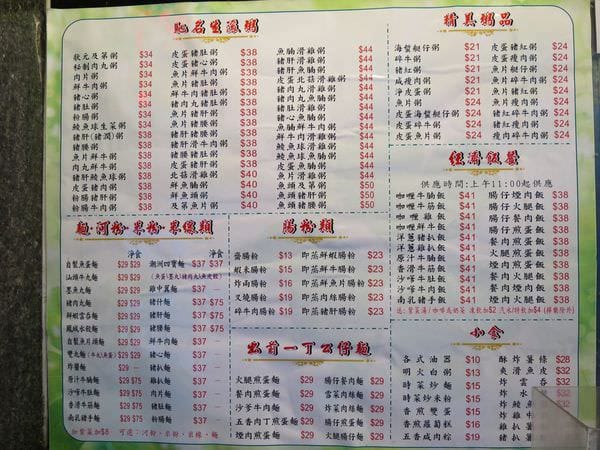 馳名生滾粥
狀元及第粥 $34
秘制肉丸粥 $34
肉片粥 $34
鮮牛肉粥 $34
豬心粥 $34
豬肚粥 $34
粉腸粥 $34
鯪魚球生菜粥 $34
豬肝(豬潤)粥 $34
豬腰粥 $34
魚片鮮牛粥 $34
肉丸鮮牛粥 $34
豬肝鯪魚球粥 $34
皮蛋豬肉粥 $34
魚卵粥 $34
粉腸牛肉粥 $34
皮蛋豬肚粥 $38
皮蛋豬心粥 $38
魚片鮮牛肉粥 $38
鮮牛肉豬肚粥 $38
豬肉丸豬肚粥 $38
魚片豬肝粥 $38
魚片豬腰粥 $38
豬肝豬腰粥 $38
豬肝滑牛肉粥 $38
豬肚豬腰粥 $38
魚片豬肚粥 $38
北菇滑雞粥 $40
皮蛋滑雞粥 $40
鮮魚鮮粥 $40
及第魚片粥 $40
魚腩滑雞粥 $44
豬肝滑雞粥 $44
豬肝魚腩粥 $44
皮蛋北菇滑雞粥 $44
豬肉丸滑雞粥 $44
豬肉丸魚腩粥 $44
豬心魚腩粥 $44
魚腩鮮牛肉粥 $44
豬肚滑雞粥 $44
豬肚魚腩粥 $44
皮蛋魚腩粥 $44
魚頭滑雞粥 $50
魚頭及第粥 $50
魚頭豬肝粥 $50
精美粥品
海蜇艇仔粥 $21
碎牛粥 $21
豬紅粥 $21
咸瘦肉粥 $21
淨皮蛋粥 $21
魚片粥 $24
皮蛋海蜇艇仔粥 $24
皮蛋碎牛粥 $24
皮蛋魚片粥 $24
皮蛋豬紅粥 $24
皮蛋瘦肉粥 $24
魚片艇仔粥 $24
魚片碎牛粥 $24
魚片瘦肉粥 $24
豬紅瘦肉粥 $24
豬紅碎牛粥 $24
瘦肉碎牛粥 $24
經濟飯餐
供應時間:上午11:00起供應
咖喱牛腩飯 $41
咖喱牛筋飯 $41
咖喱雞飯 $41
洋蔥雞扒飯 $41
洋蔥豬扒飯 $41
原汁牛腩飯 $41
香滑牛筋飯 $41
沙嗲牛肉飯 $41
豬肚飯 $41
南乳豬手飯 $41
腸仔煙肉飯 $38
腸仔火腿飯 $38
腸仔餐肉飯 $38
腸仔煎蛋飯 $38
餐肉煎蛋飯 $38
火腿煎蛋飯 $38
煙肉煎蛋飯 $38
餐肉煙肉飯 $38
餐肉火腿飯 $38
煙肉火腿飯 $38
送:紫菜湯/咖啡或奶茶 凍飲加$2 汽水/特飲加$4 (檸樂除外)
麵·河粉·米粉·米線類
淨食
自製魚蛋麵 $29 $29
汕頭牛丸麵 $29 $29
墨魚丸麵 $29 $29
豬肉丸麵 $29 $29
鮮蝦雲吞麵 $29 $29
鳳城水餃麵 $29 $29
自製魚片頭麵 $29 $29
雙丸麵(牛丸/魚蛋) $29 $29
炸醬麵 $29 —
原汁牛腩麵 $29 $75
沙嗲牛肚麵 $29 $75
香滑牛筋麵 $29 $75
南乳豬手麵 $29 $75
加紫菜加$8
淨食
潮洲四寶麵 $37 $37
(魚蛋/墨丸/豬肉丸/魚皮餃)
雞中翼麵 $37 —
豬什麵 $37 $75
豬腰麵 $37 $75
豬肝麵 $37 —
鮮牛肉麵 $37 —
豬心麵 $37 —
肉片麵 $37 —
雞扒麵 $37 —
豬扒麵 $37 —
豬肚麵 $37 —
粉腸麵 $37 —
可選:河粉·米粉·米線·麵
腸粉類
齋腸粉 $13
蝦米腸粉 $15
炸兩腸粉 $16
叉燒腸粉 $19
碎牛肉腸粉 $19
即蒸鮮蝦腸粉 $23
即蒸牛腸粉 $23
即蒸鮮魚片腸粉 $23
即蒸肉絲腸粉 $23
即蒸豬肝腸粉 $23
出前一丁公仔麵
火腿煎蛋麵 $29
餐肉煎蛋麵 $29
沙爹牛肉麵 $29
五香肉丁煎蛋麵 $29
煙肉煎蛋麵 $29
腸仔餐肉麵 $29
雪菜肉絲麵 $29
炸菜肉絲麵 $29
腸仔煎蛋麵 $29
火腿腸仔麵 $29
小食
各式油器 $10
明火白粥 $13
時菜炒麵 $15
時菜炒米粉 $15
香煎雙蛋 $15
香煎蘿蔔糕 $16
五香咸肉粽 $19
酥炸薯條 $28
爽滑魚皮 $32
炸雲吞 $32
炸水 $32
炸魚 $32
炸雞
雞扒
豬扒